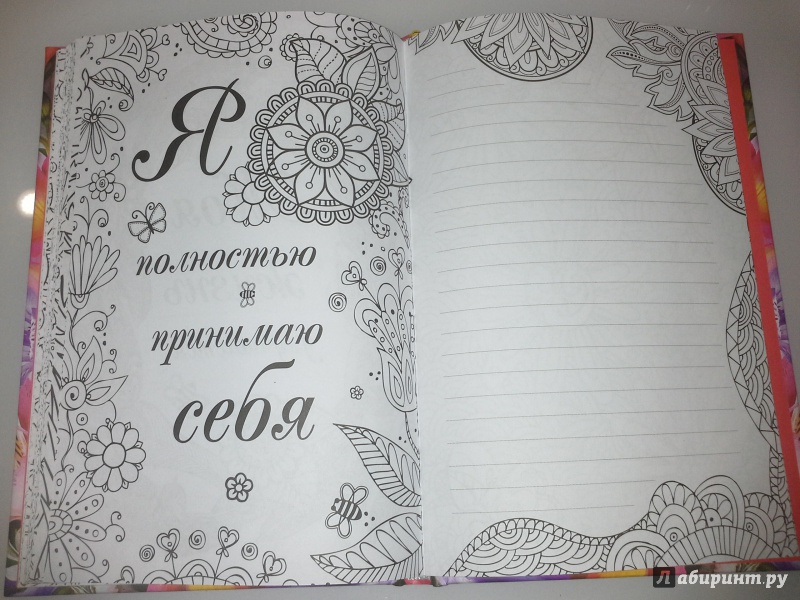 Я
полностью
принимаю
себя
Лабиринт.ру